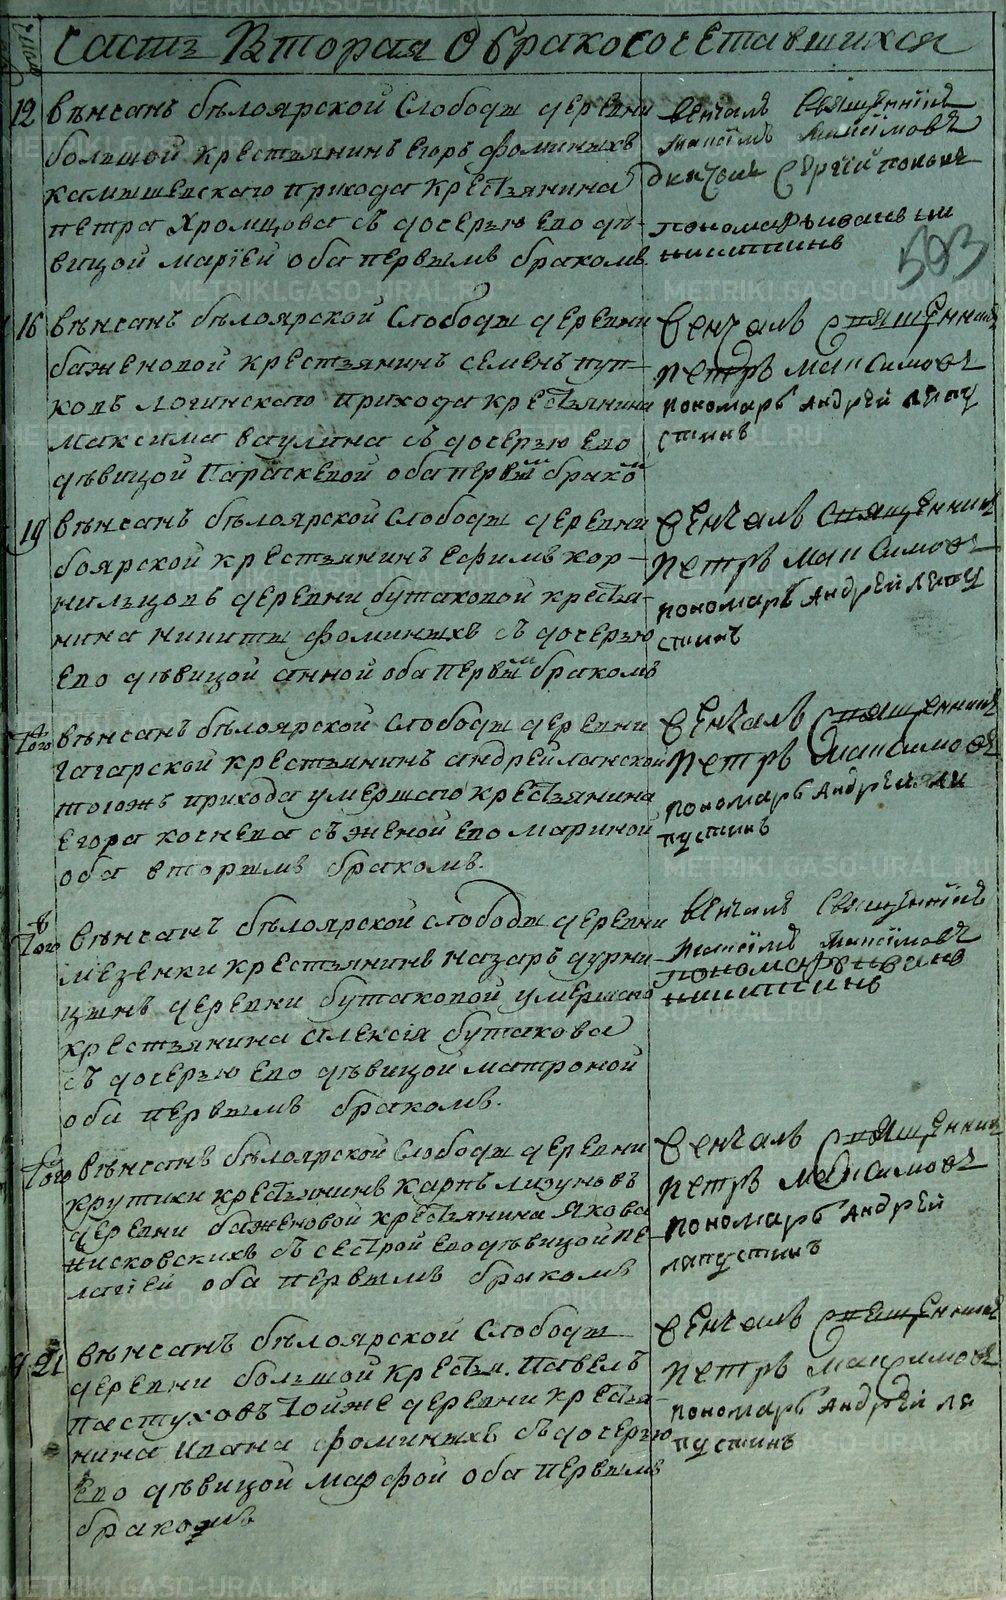 Часть Вторая О бракосочетавшихся
593
12 вѣнчанъ бѣлоярской Слободы деревни
большой крестьянинъ егоръ фоминыхъ
камышевскаго прихода крестьянина
петра Хромцова съ дочерью его дѣ-
вицой марїей оба первымъ бракомъ
венчалъ Священникъ
Максїмъ Максїмовъ
Диячекъ Сергїй поповъ
пономарь иванъ
никитинъ
16 вѣнчанъ бѣлоярской Слободы деревни
баженовой крестьянинъ семенъ пуп-
ковъ логинскаго прихода крестьянина
максима ваулина съ дочерью его
дѣвицой Параскевой оба первым брако
Венчалъ священникъ
петръ максимовъ
пономарь Андрей лапу
стинъ
19 вѣнчанъ бѣлоярской Слободы деревни
боярской крестьянинъ ефимъ кор-
нильцовъ деревни бутаковой кресья-
нина никиты фоминыхъ съ дочерью
его дѣвицой анной оба первым бракомъ
венчалъ священникъ
петръ максимовъ
пономарь Андрей лапу
стинъ
того вѣнчанъ бѣлоярской Слободы деревни
гагарской крестьянинъ андрей ланской
тогожъ прихода умершаго крестьянина
егора кочнева съ женой его мариной
оба вторымъ бракомъ.
венчалъ священникъ
петръ максимовъ
пономарь Андрей ла
пустинъ
того вѣнчанъ бѣлоярской слободы деревни
мезенки крестьянинъ назаръ дурни
цынъ деревни бутаковой умершаго
крестьянина алексія бутакова
съ дочерью его дѣвицой матроной
оба первымъ бракомъ.
венчалъ Священникъ
Максїмъ Максїмовъ
пономарь иванъ
никитинъ
того вѣнчанъ бѣлоярской Слободы деревни
крутихи крестьянинъ карпъ лизуновъ
деревни баженовой крестьянина якова
нисковскихъ съ сестрой его дѣвицой пе
лагїей оба первымъ бракомъ
венчалъ священник
петръ максимовъ
пономарь Андрей
лапустинъ
21 вѣнчанъ бѣлоярской Слободы
деревни большой крестья. Павелъ
пастуховъ тойже деревни крестья
нина Ивана фоминыхъ съ дочерью
его дѣвицой марфой оба первымъ
бракомъ
венчалъ священникъ
петръ максимовъ
пономарь Андрей ла
пустинъ